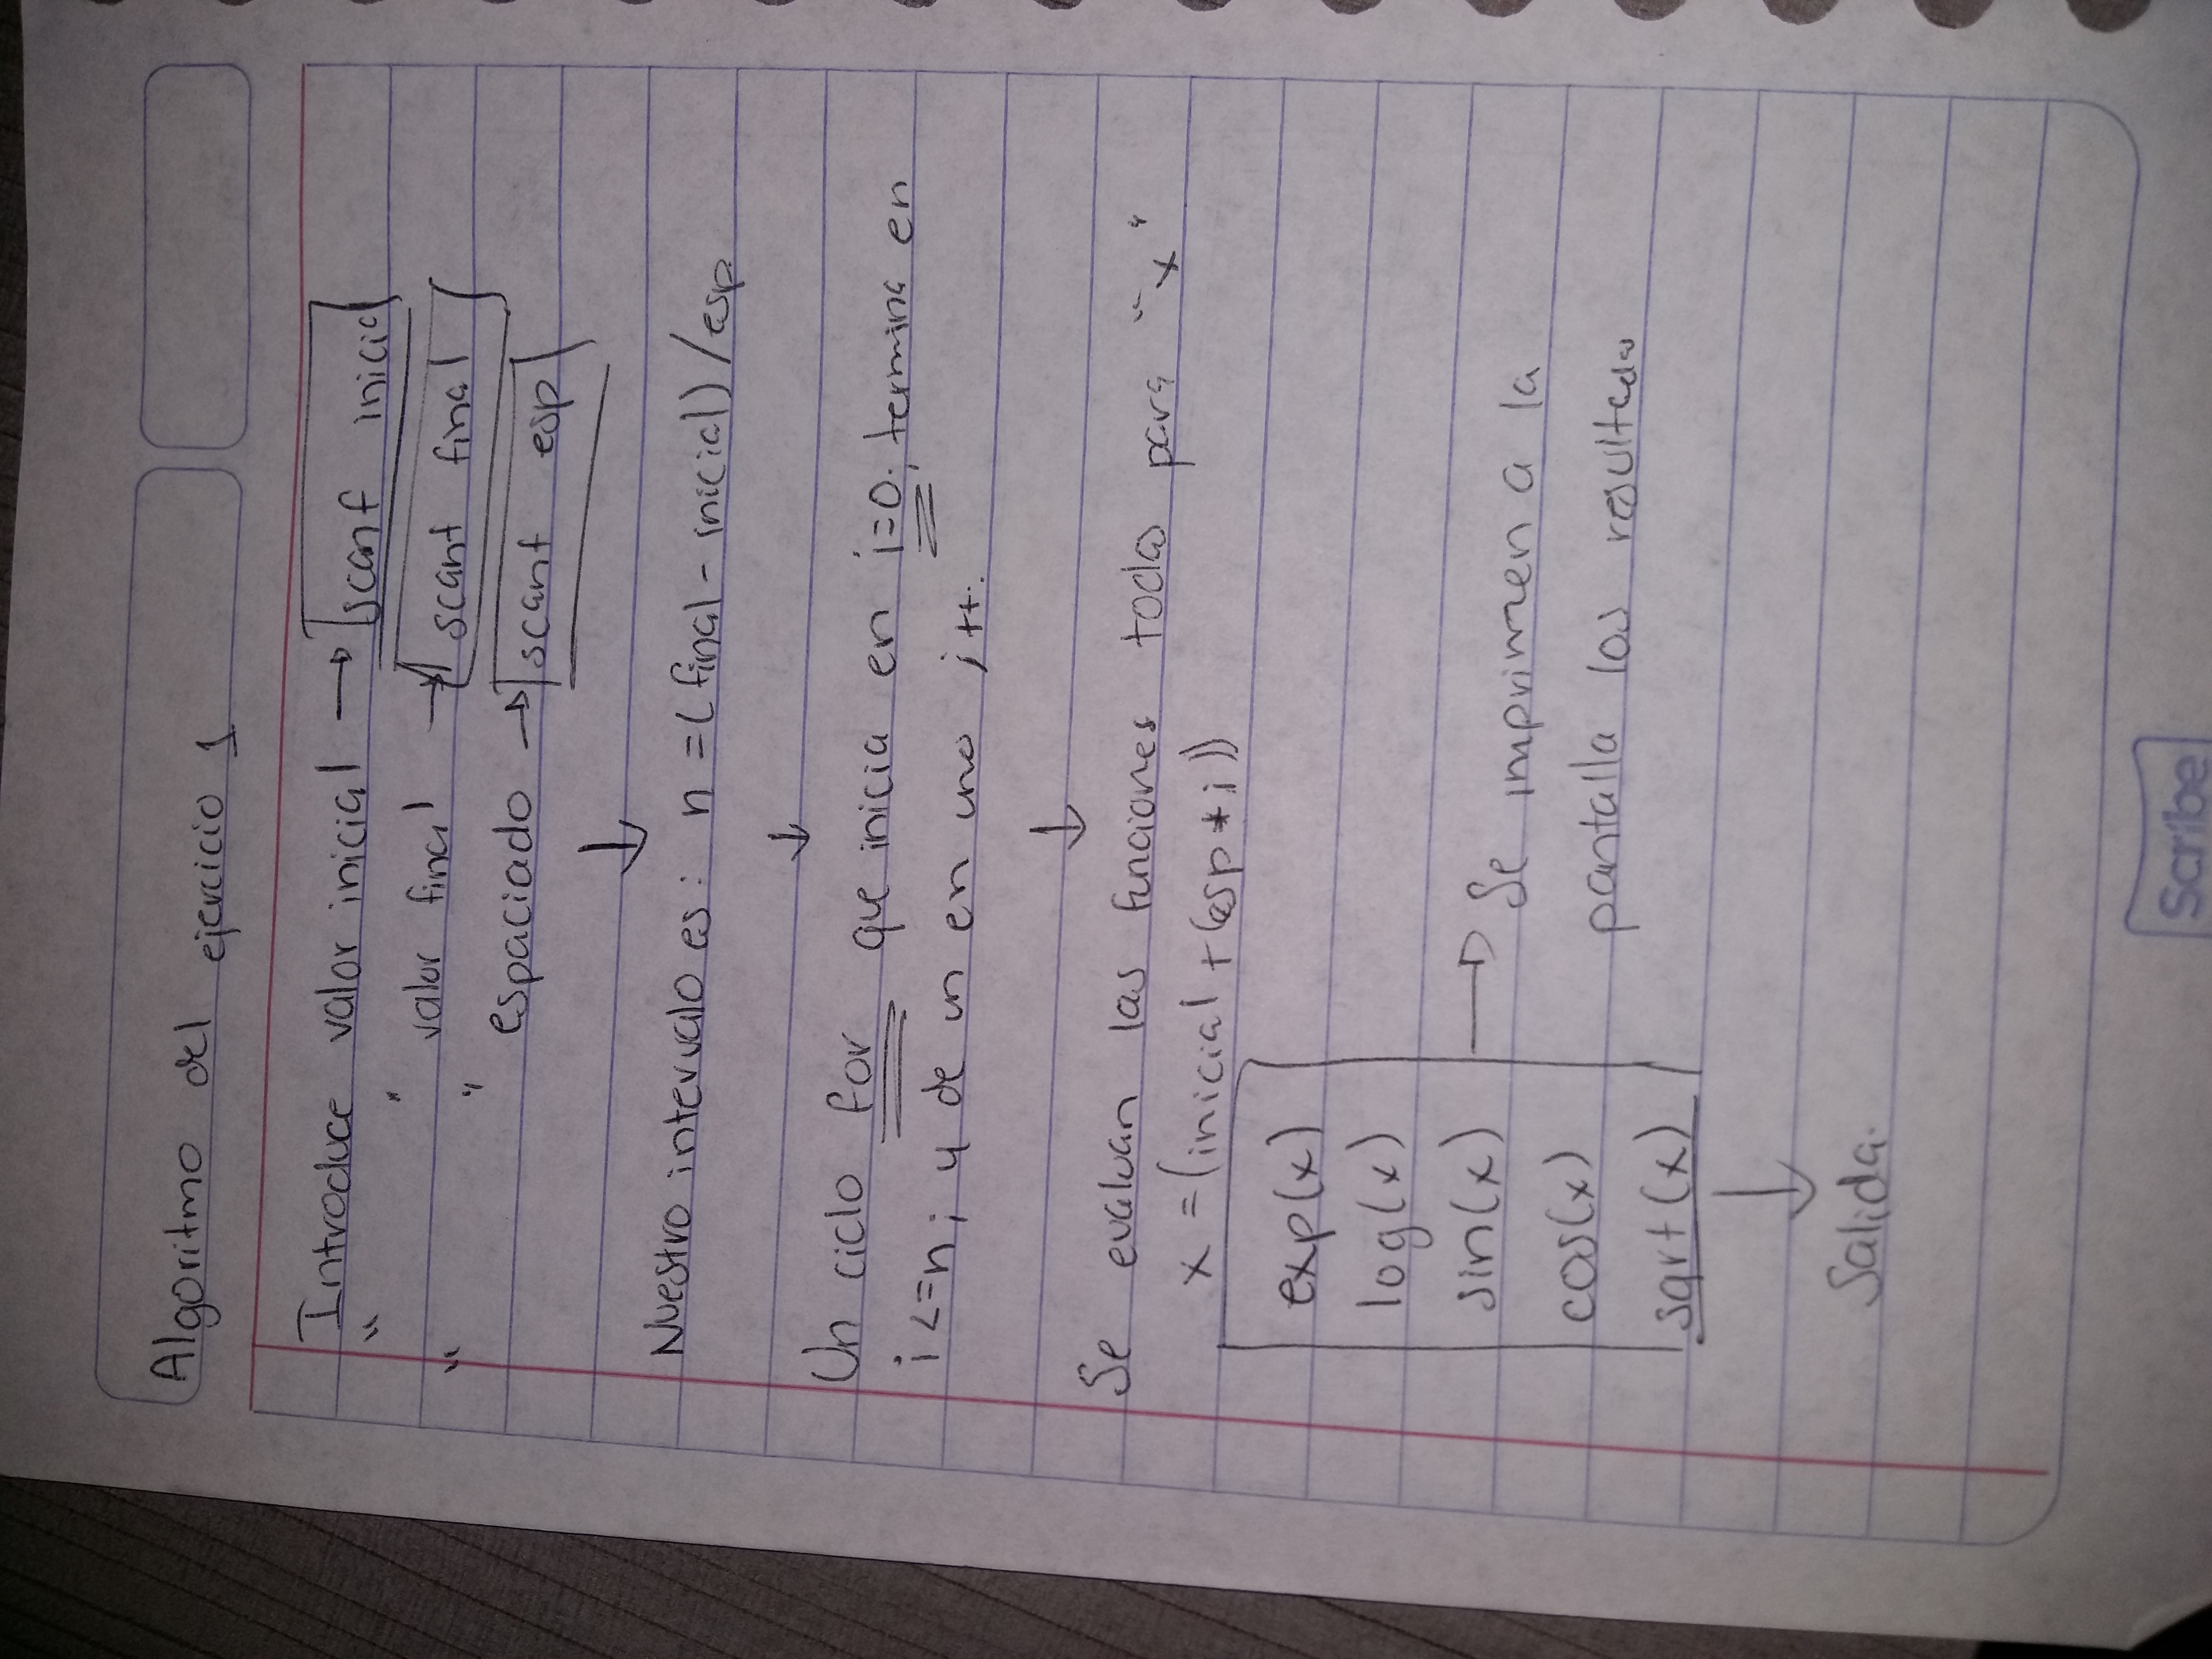 Algoritmo del ejercicio 1
Introduce valor inicial → scanf inicial
" " valor final → scanf final
" " espaciado → scanf esp
↓
Nuestro intervalo es: n = (final - inicial) / esp
↓
Un ciclo for que inicia en i=0; termina en
i <=n; y de un en uno i++.
↓
Se evaluan las funciones todas para "x"
x = (inicial + (esp * i))
exp(x)
log(x)
sin(x) → Se imprimen a la
cos(x) pantalla los resultados
sqrt(x)
↓
Salida.
Scribe